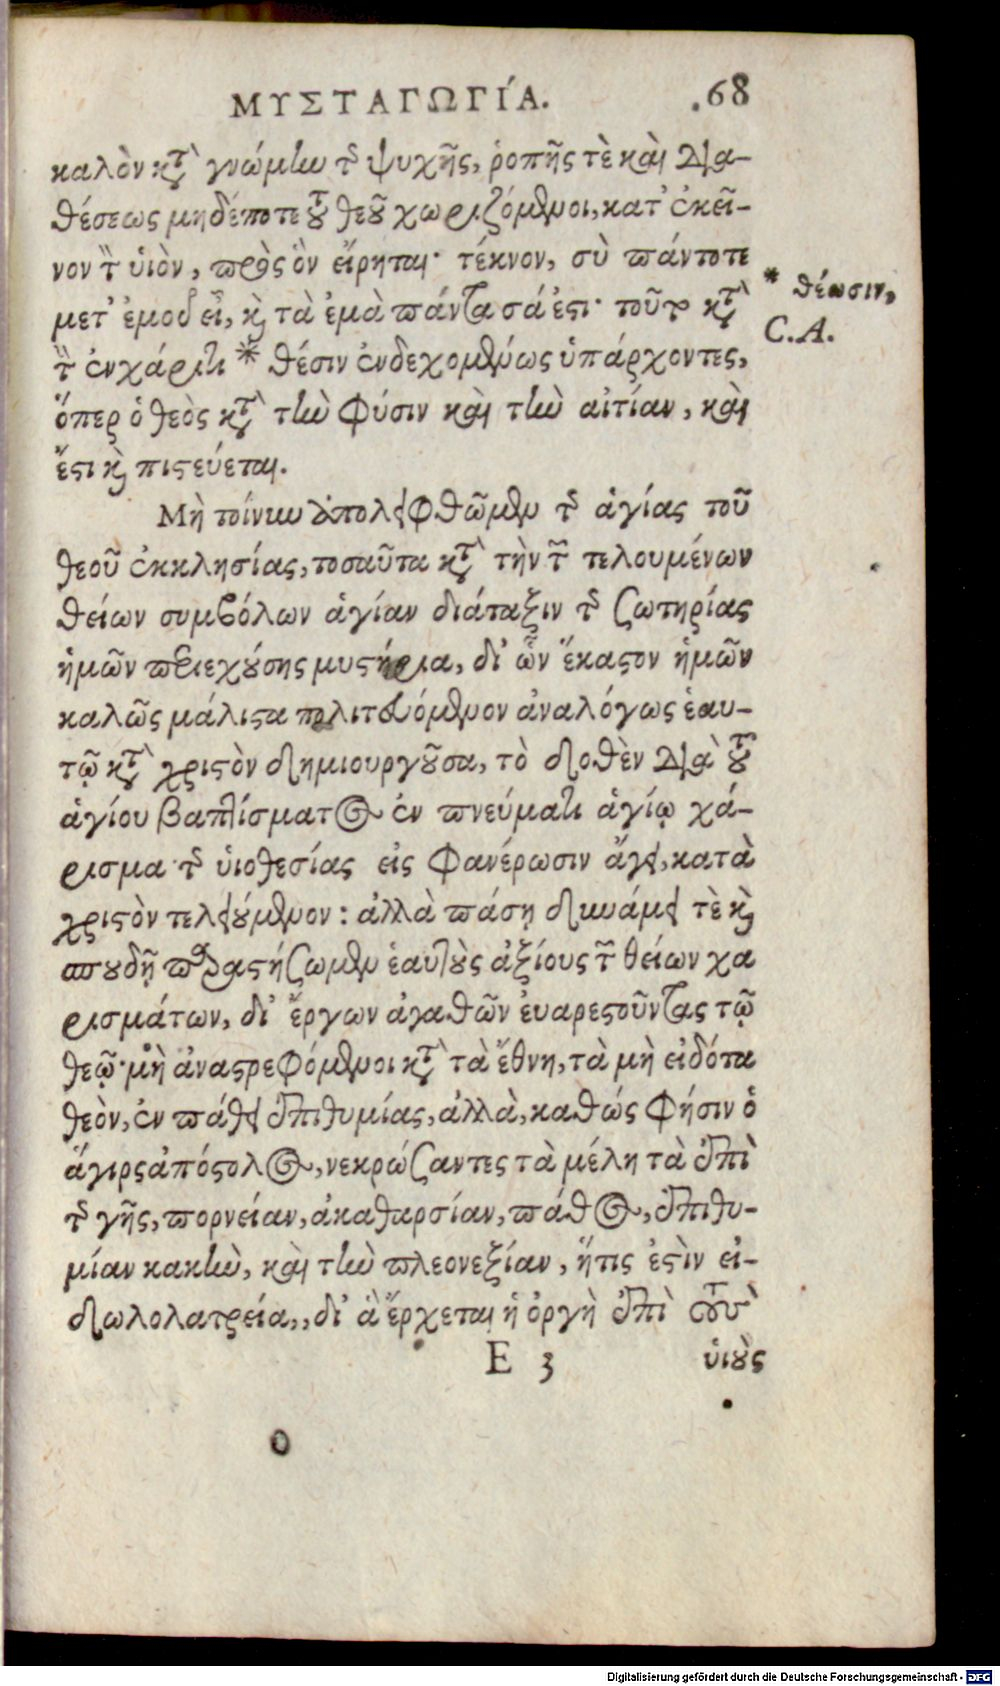 ΜΥΣΤΑΓΩΓΊΑ. 68
καλὸν κατὰ γνώμην τῆς ψυχῆς, ῥοπῆς τὲ καὶ δια-
θέσεως μηδέποτε τοῦ θεοῦ χωριζόμενοι, κατ' ἐκεῖ-
νον τὸν ὑιὸν, πρὸς ὃν εἴρηται· τέκνον, σὺ πάντοτε
μετ' ἐμοῦ εἶ, καὶ τὰ ἐμὰ πάντα σά ἐστι· τοῦτο κατὰ
τὴν ἐν χάριτι * θέσιν ἐνδεχομένως ὑπάρχοντες,
ὅπερ ὁ θεὸς κατὰ τὴν φύσιν καὶ τὴν αἰτίαν, καὶ
ἔστι καὶ πιστεύεται.
* θέωσιν,
C.A.
Μὴ τοίνυν ἀπολειφθῶμεν τῆς ἁγίας τοῦ
θεοῦ ἐκκλησίας, τοσαῦτα κατὰ τὴν τῶν τελουμένων
θείων συμβόλων ἁγίαν διάταξιν τῆς ζωτηρίας
ἡμῶν περιεχούσης μυστήρια, δι' ὧν ἕκαστον ἡμῶν
καλῶς μάλιστα πολιτευόμενον ἀναλόγως ἑαυ-
τῷ κατὰ χριστὸν δημιουργοῦσα, τὸ δοθὲν διὰ τοῦ
ἁγίου βαπτίσματος ἐν πνεύματι ἁγίῳ χά-
ρισμα τῆς ὑιοθεσίας εἰς φανέρωσιν ἄγει, κατὰ
χριστὸν τελειούμενον: ἀλλὰ πάσῃ δυνάμει τὲ καὶ
σπουδῇ παραστήζωμεν ἑαυτοὺς ἀξίους τῶν θείων χα
ρισμάτων, δι' ἔργων ἀγαθῶν ἐυαρεστοῦντας τῷ
θεῷ· μὴ ἀναστρεφόμενοι κατὰ τὰ ἔθνη, τὰ μὴ εἰδότα
θεὸν, ἐν πάθει ἐπιθυμίας, ἀλλὰ, καθώς φήσιν ὁ
ἅγιος ἀπόστολος, νεκρώζαντες τὰ μέλη τὰ ἐπὶ
τῆς γῆς, πορνείαν, ἀκαθαρσίαν, πάθος, ἐπιθυ-
μίαν κακὴν, καὶ τὴν πλεονεξίαν, ἥτις ἐστὶν εἰ-
δωλολατρεία,, δι' ἃ ἔρχεται ἡ ὀργὴ ἐπὶ τοὺς
E 3 ὑιοὺς
Digitalisierung gefördert durch die Deutsche Forschungsgemeinschaft - DFG